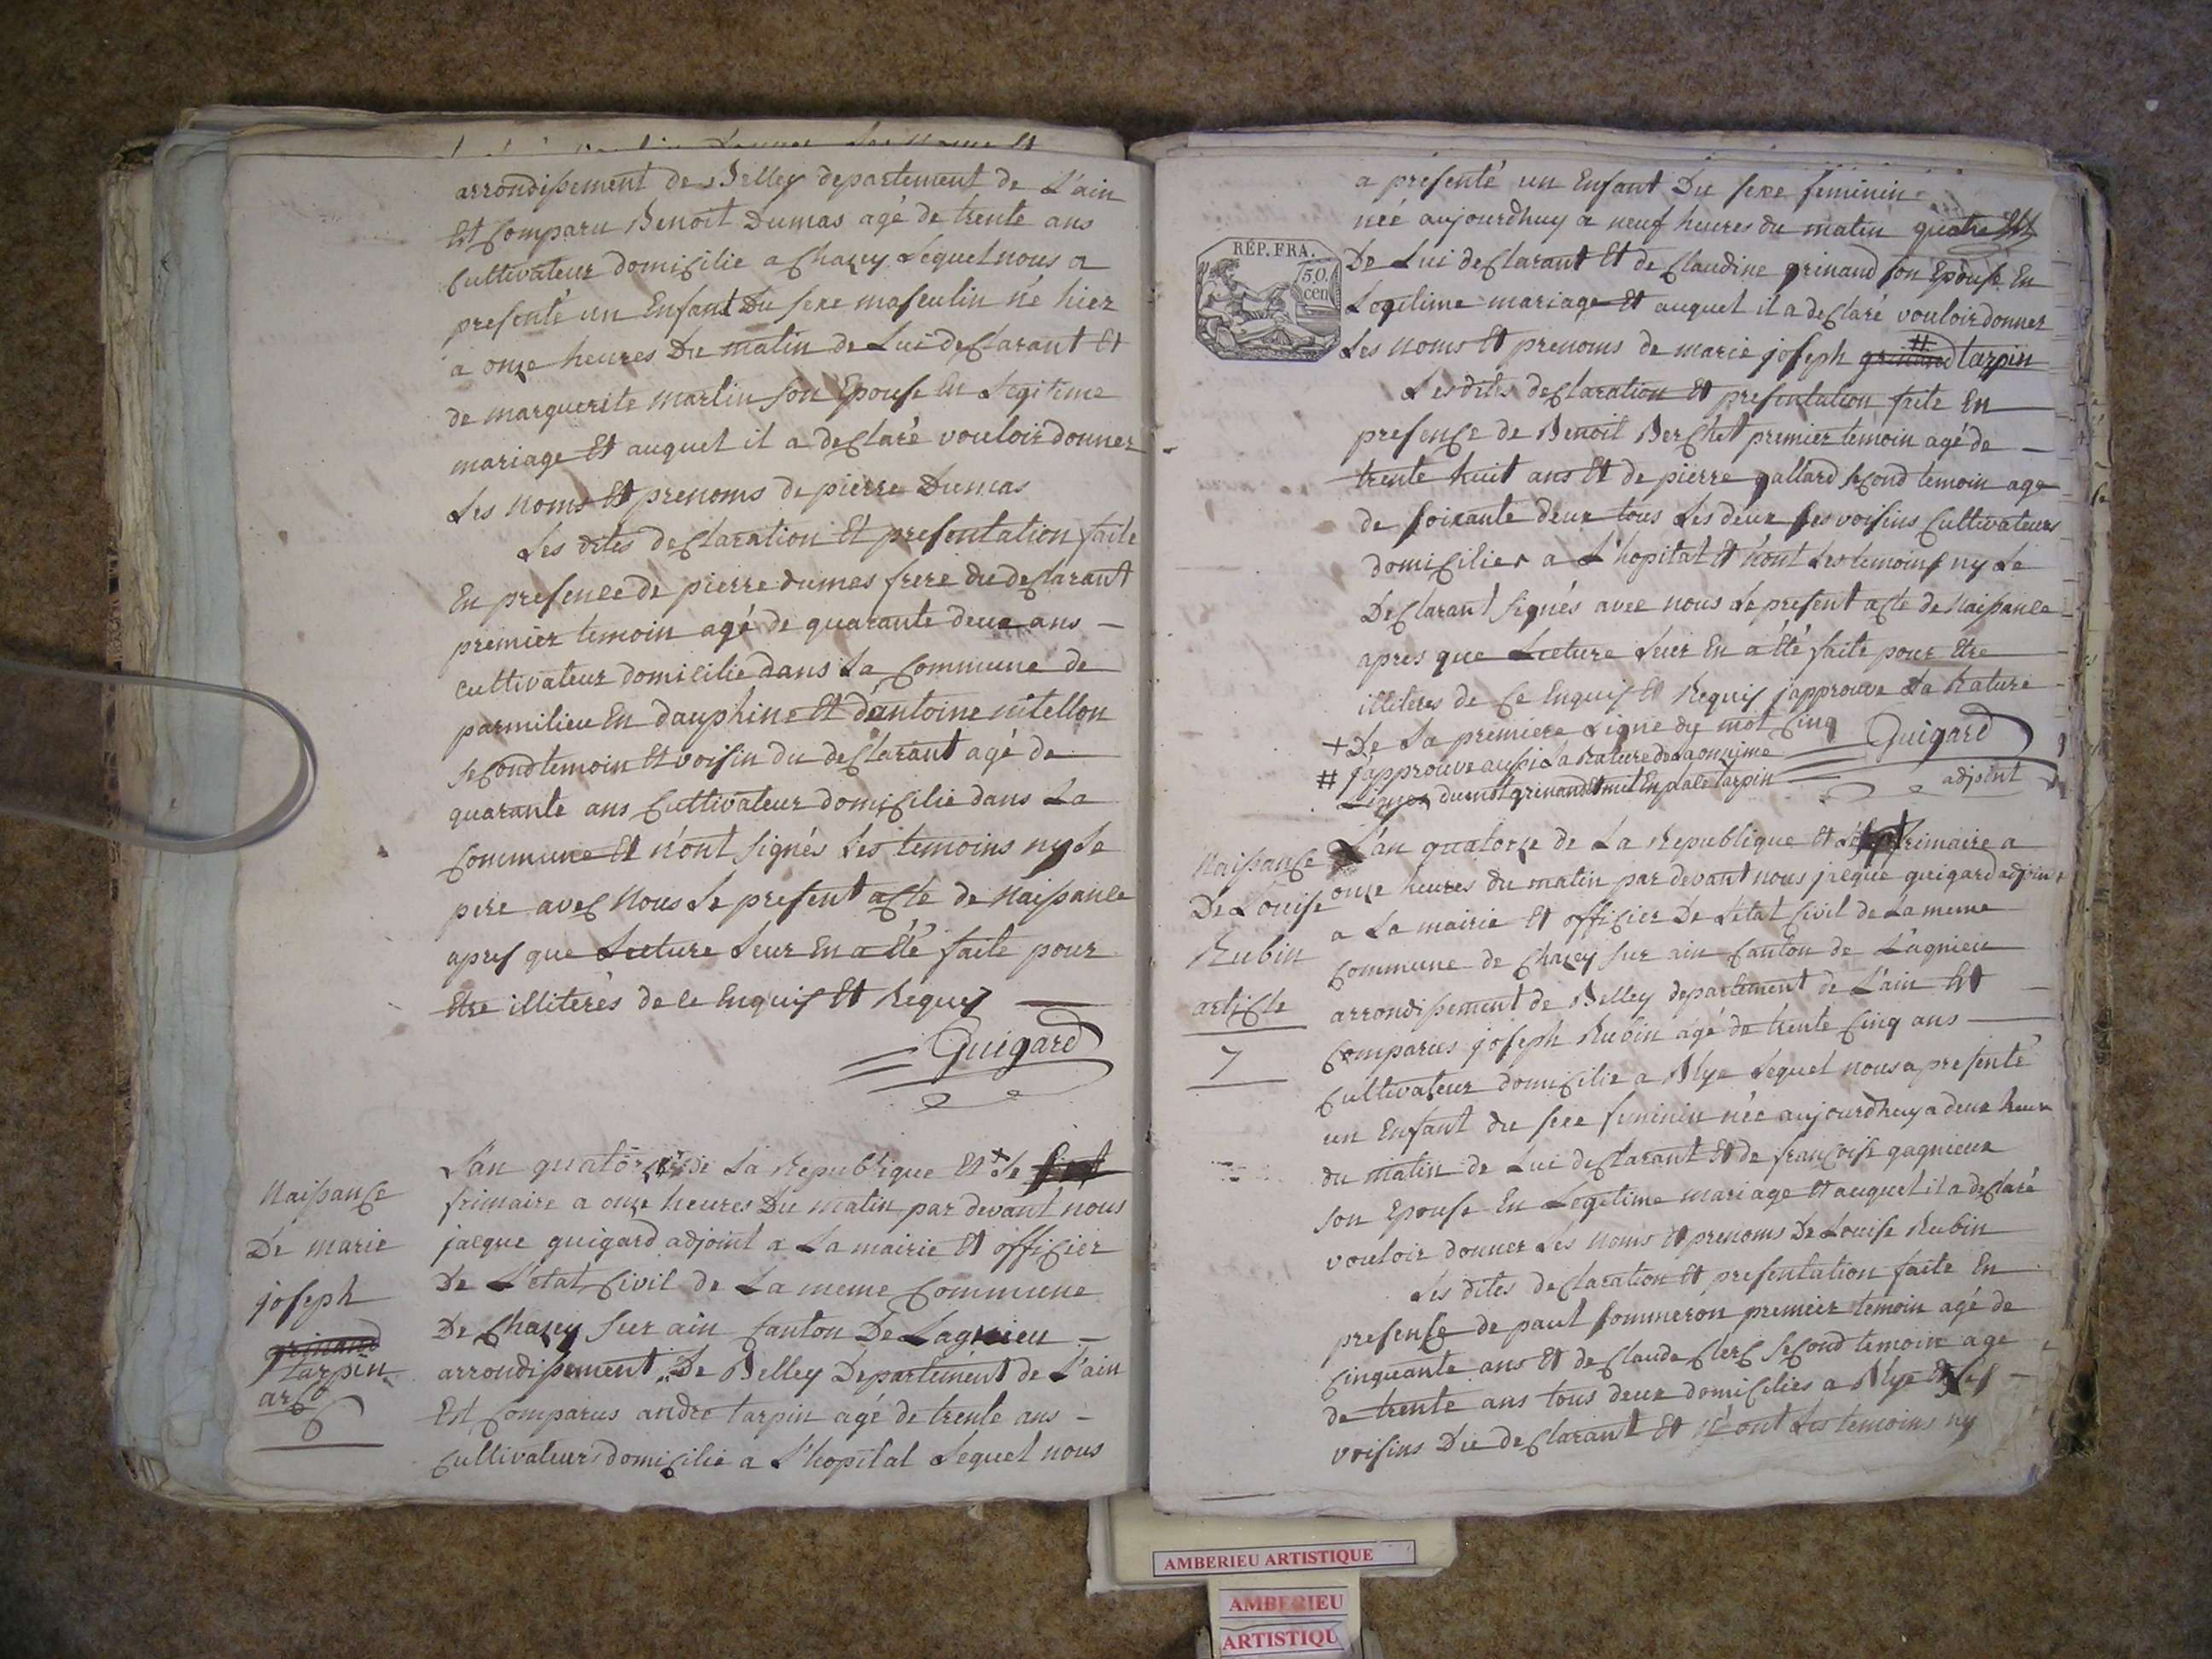 arrondissement de Belley departement de L'ain
Est Comparu Benoit Dumas agé de trente ans
Cultivateur domicilié a Chazey Lequel nous a
presenté un Enfant Du sexe masculin né hier
a onze heures Du matin de Lui declarant Et
de marguerite marlin son Epouse En Legitime
mariage Et auquel il a declaré vouloir donner
Les Noms Et prenoms de pierre Dumas
Les dites declaration Et presentation faite
En presence de pierre dumas frere du declarant
premier temoin agé de quarante deux ans —
cultivateur domicilié dans La Commune de
parmilieu En dauphine Et d'antoine nitellon
second temoin Et voisin du declarant agé de
quarante ans Cultivateur domicilié dans La
Commune Et n'ont signés Les temoins ny Le
pere avec Nous Le present acte de Naissance
apres que Lecture Leur En a Eté faite pour
Etre illiterés de ce Enquis Et Requis
Guigard
Naissance
De marie
joseph
grinand
tarpin
arc
6
L'an quatorze de La Republique Et + Le
frimaire a onze heures Du matin par devant nous
jacque guigard adjoint a La mairie Et officier
De L'etat Civil de La meme Commune
De Chazey sur ain Canton De Lagnieu —
arrondissement De Belley Departement de L'ain
Est Comparus andre tarpin agé de trente ans —
Cultivateur domicilié a L'hopital Lequel nous
a presenté un Enfant Du sexe feminin
née aujourdhuy a neuf heures du matin
RÉP. FRA.
50.
cen
De Lui declarant Et de Claudine grinand son Epouse En
Legitime mariage Et auquel il a declaré vouloir donner
Les Noms Et prenoms de marie joseph grinand # tarpin
Les dites declaration Et presentation faite En
presence de Benoit Berchet premier temoin agé de —
trente huit ans Et de pierre gallard second temoin age
de soixante deux tous Les deux ses voisins Cultivateurs
domicilier a L'hopital Et n'ont Les temoins ny Le
Declarant signés avec nous Le present acte de Naissance
apres que Lecture Leur En a Eté faite pour Etre
illiteres de Ce Enquis Et Requis j'approuve La Rature
+ De La premiere Ligne du mot Cinq
# j'approuve aussi La Rature de La onzime
Lignes du mot grinand Et mit En place tarpin
Guigard
adjoint
Naissance
De Louise
Rubin
article
7
L'an quatorze de La Republique Et frimaire a
onze heures du matin par devant nous jacque guigard adjoint
a La mairie Et officier De L'etat Civil de La meme
Commune de Chazey sur ain Canton de Lagnieu
arrondissement de Belley departement de L'ain Est
Comparus joseph Rubin agé de trente Cinq ans
Cultivateur domicilié a Blye Lequel nous a presenté
un Enfant du sexe feminin née aujourdhuy a deux heures
du matin de Lui declarant Et de francoise gagnieux
son Epouse En Legitime mariage Et auquel il a declaré
vouloir donner Les Noms Et prenoms De Louise Rubin
Les dites declaration Et presentation faite En
presence de paul sommeron premier temoin agé de
Cinquante ans Et de Claude Clerc second temoin age
de trente ans tous deux domiciliés a Blye Et
voisins Du declarant Et n'ont Les temoins ny
AMBERIEU ARTISTIQUE
AMBERIEU
ARTISTIQU